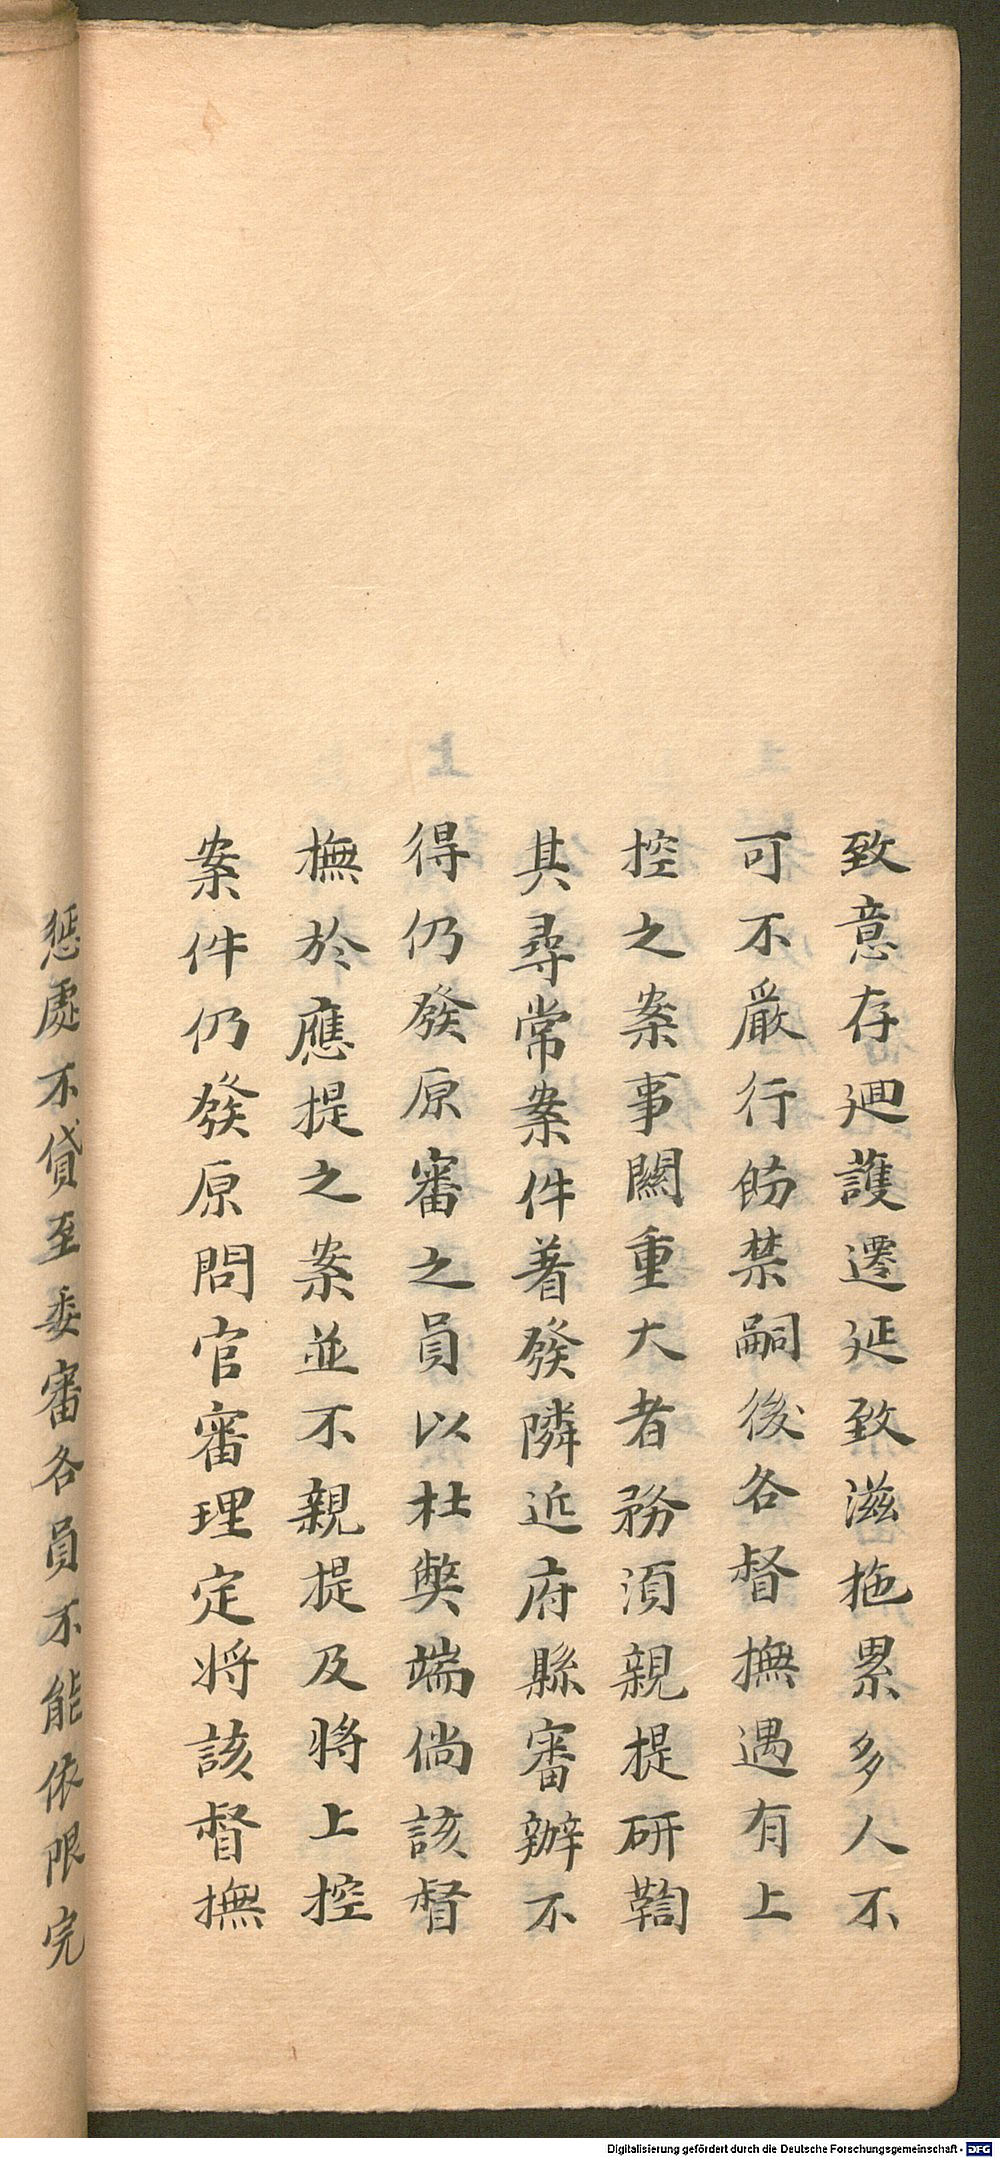 致意存廻護遷延致滋拖累多人不
可不嚴行飭禁嗣後各督撫遇有上
控之案事關重大者務須親提研鞫
其尋常案件着發隣近府縣審辦不
得仍發原審之員以杜弊端倘該督
撫於應提之案並不親提及將上控
案件仍發原問官審理定將該督撫
懲處不貸至委審各員不能依限完
Digitalisierung gefördert durch die Deutsche Forschungsgemeinschaft - DFG